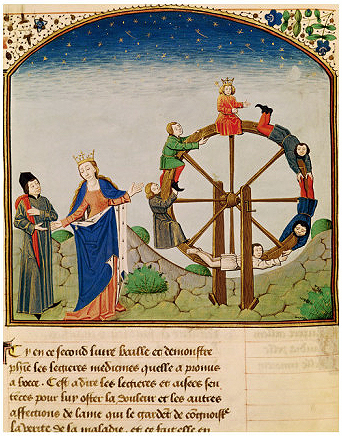 Cy en ce second liure baille et demonstre
phie les legieres medicines quelle a promis
a boece. Cest a dire les legieres et aisees sen
teces pour luy oster la douleur et les autres
affections de lame qui le gardēt de
la verite de sa maladie, et ce fait elle en